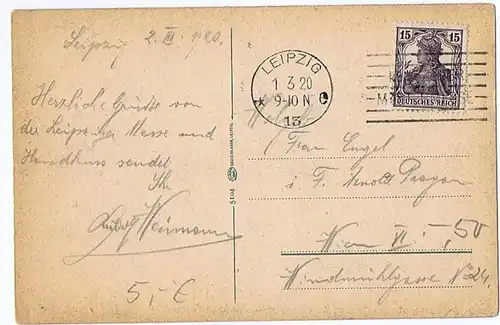 Leipzig 2. III. 1920.
Herzliche Grüße von
der Leipziger Messe und
Handkuss sendet
Ihr
Weimann
5,- €
LEIPZIG
1 3 20
9-10 N
13
15 15
DEUTSCHES REICH
Frau Engel
i. F. Arnold
Wien VI. -,50
Windmühlgasse No 24.